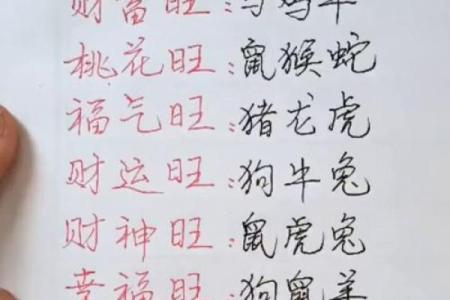 财富旺：马鸡牛
桃花旺：鼠猴蛇
福气旺：猪龙虎
财运旺：狗牛兔
财神旺：鼠虎兔
幸福旺：狗鼠羊